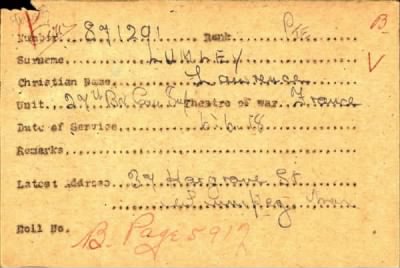 B
Number 871291 Rank Pte
Surname LUMLEY V
Christian Name Lawrence
Unit. 27th Bn Can Inf Theatre of war. France
Date of Service
Remarks
Latest Address 37 Hargrave St
Winnipeg Man
Roll No. B. Page 5912